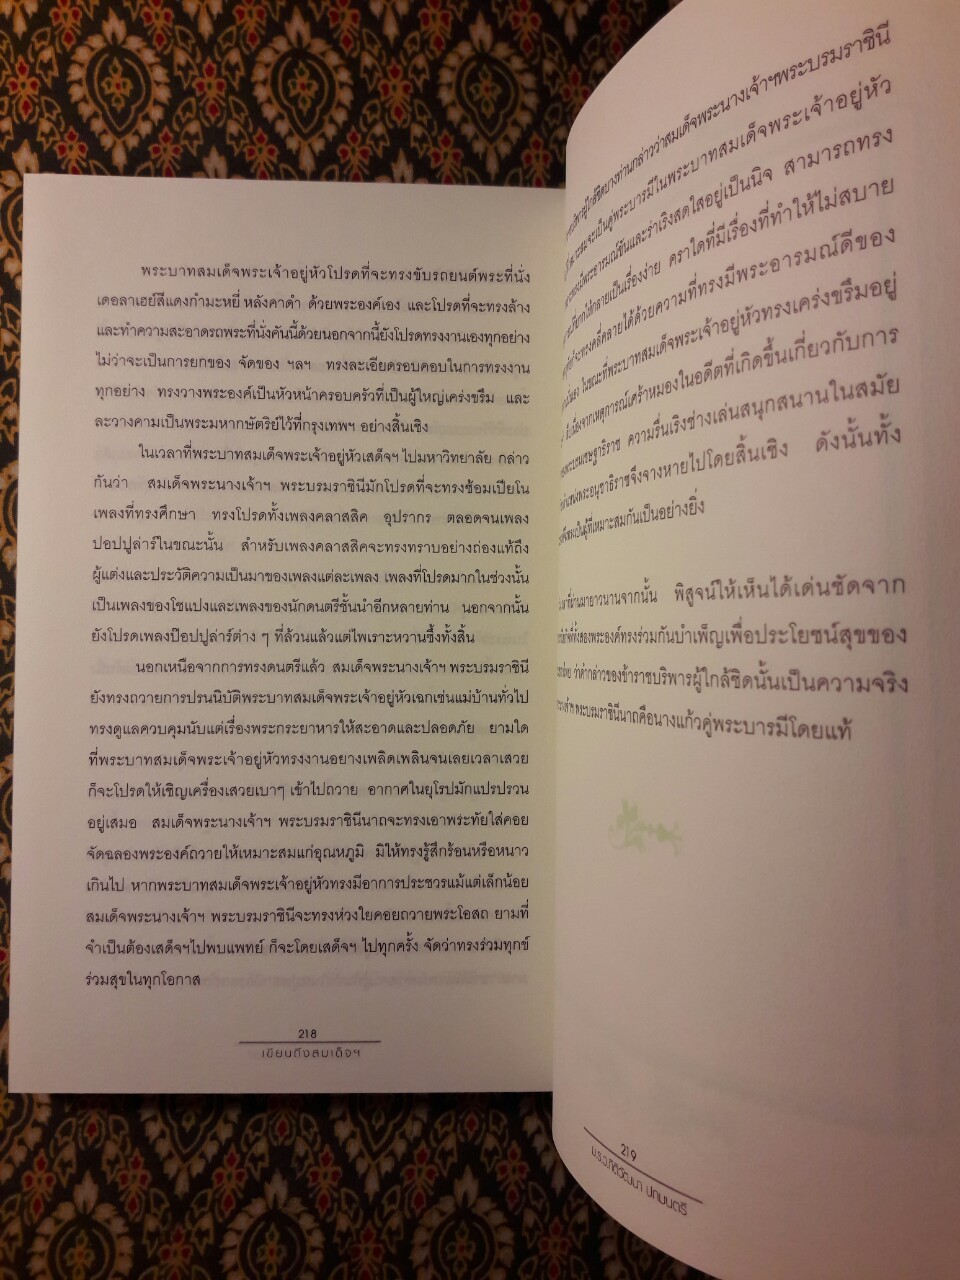 พระบาทสมเด็จพระเจ้าอยู่หัวโปรดที่จะทรงขับรถยนต์พระที่นั่ง
เดอลาเฮย์สีแดงกำมะหยี่ หลังคาดำ ด้วยพระองค์เอง และโปรดที่จะทรงล้าง
และทำความสะอาดรถพระที่นั่งคันนี้ด้วยนอกจากนี้ยังโปรดทรงงานเองทุกอย่าง
ไม่ว่าจะเป็นการยกของ จัดของ ฯลฯ ทรงละเอียดรอบคอบในการทรงงาน
ทุกอย่าง ทรงวางพระองค์เป็นหัวหน้าครอบครัวที่เป็นผู้ใหญ่เคร่งขรึม และ
ละวางคามเป็นพระมหากษัตริย์ไว้ที่กรุงเทพฯ อย่างสิ้นเชิง
ในเวลาที่พระบาทสมเด็จพระเจ้าอยู่หัวเสด็จฯ ไปมหาวิทยาลัย กล่าว
กันว่า สมเด็จพระนางเจ้าฯ พระบรมราชินีมักโปรดที่จะทรงซ้อมเปียโน
เพลงที่ทรงศึกษา ทรงโปรดทั้งเพลงคลาสสิค อุปรากร ตลอดจนเพลง
ปอปปูล่าร์ในขณะนั้น สำหรับเพลงคลาสสิคจะทรงทราบอย่างถ่องแท้ถึง
ผู้แต่งและประวัติความเป็นมาของเพลงแต่ละเพลง เพลงที่โปรดมากในช่วงนั้น
เป็นเพลงของโชแปงและเพลงของนักดนตรีชั้นนำอีกหลายท่าน นอกจากนั้น
ยังโปรดเพลงป๊อปปูล่าร์ต่าง ๆ ที่ล้วนแล้วแต่ไพเราะหวานซึ้งทั้งสิ้น
นอกเหนือจากการทรงดนตรีแล้ว สมเด็จพระนางเจ้าฯ พระบรมราชินี
ยังทรงถวายการปรนนิบัติพระบาทสมเด็จพระเจ้าอยู่หัวเฉกเช่นแม่บ้านทั่วไป
ทรงดูแลควบคุมนับแต่เรื่องพระกระยาหารให้สะอาดและปลอดภัย ยามใด
ที่พระบาทสมเด็จพระเจ้าอยู่หัวทรงงานอยางเพลิดเพลินจนเลยเวลาเสวย
ก็จะโปรดให้เชิญเครื่องเสวยเบาๆ เข้าไปถวาย อากาศในยุโรปมักแปรปรวน
อยู่เสมอ สมเด็จพระนางเจ้าฯ พระบรมราชินีนาถจะทรงเอาพระทัยใส่คอย
จัดฉลองพระองค์ถวายให้เหมาะสมแก่อุณหภูมิ มิให้ทรงรู้สึกร้อนหรือหนาว
เกินไป หากพระบาทสมเด็จพระเจ้าอยู่หัวทรงมีอาการประชวรแม้แต่เล็กน้อย
สมเด็จพระนางเจ้าฯ พระบรมราชินีจะทรงห่วงใยคอยถวายพระโอสถ ยามที่
จำเป็นต้องเสด็จฯไปพบแพทย์ ก็จะโดยเสด็จฯ ไปทุกครั้ง จัดว่าทรงร่วมทุกข์
ร่วมสุขในทุกโอกาส
218
เขียนถึงสมเด็จฯ
ผู้ใกล้ชิดบางท่านกล่าวว่าสมเด็จพระนางเจ้าฯพระบรมราชินี
จะเป็นคู่พระบารมีในพระบาทสมเด็จพระเจ้าอยู่หัว
พระอารมณ์ขันและร่าเริงสดใสอยู่เป็นนิจ สามารถทรง
ให้กลายเป็นเรื่องง่าย คราใดที่มีเรื่องที่ทำให้ไม่สบาย
จะทรงคลี่คลายได้ด้วยความที่ทรงมีพระอารมณ์ดีของ
ในขณะที่พระบาทสมเด็จพระเจ้าอยู่หัวทรงเคร่งขรึมอยู่
สืบเนื่องจากเหตุการณ์เศร้าหมองในอดีตที่เกิดขึ้นเกี่ยวกับการ
พระบรมเชษฐาธิราช ความรื่นเริงช่างเล่นสนุกสนานในสมัย
พระอนุชาธิราชจึงจางหายไปโดยสิ้นเชิง ดังนั้นทั้ง
จึงทรงเป็นผู้ที่เหมาะสมกันเป็นอย่างยิ่ง
ที่ผ่านมายาวนานจากนั้น พิสูจน์ให้เห็นได้เด่นชัดจาก
ที่ทั้งสองพระองค์ทรงร่วมกันบำเพ็ญเพื่อประโยชน์สุขของ
ว่าคำกล่าวของข้าราชบริพารผู้ใกล้ชิดนั้นเป็นความจริง
พระบรมราชินีนาถคือนางแก้วคู่พระบารมีโดยแท้
219
ม.ร.ว.กิติวัฒนา ปกมนตรี